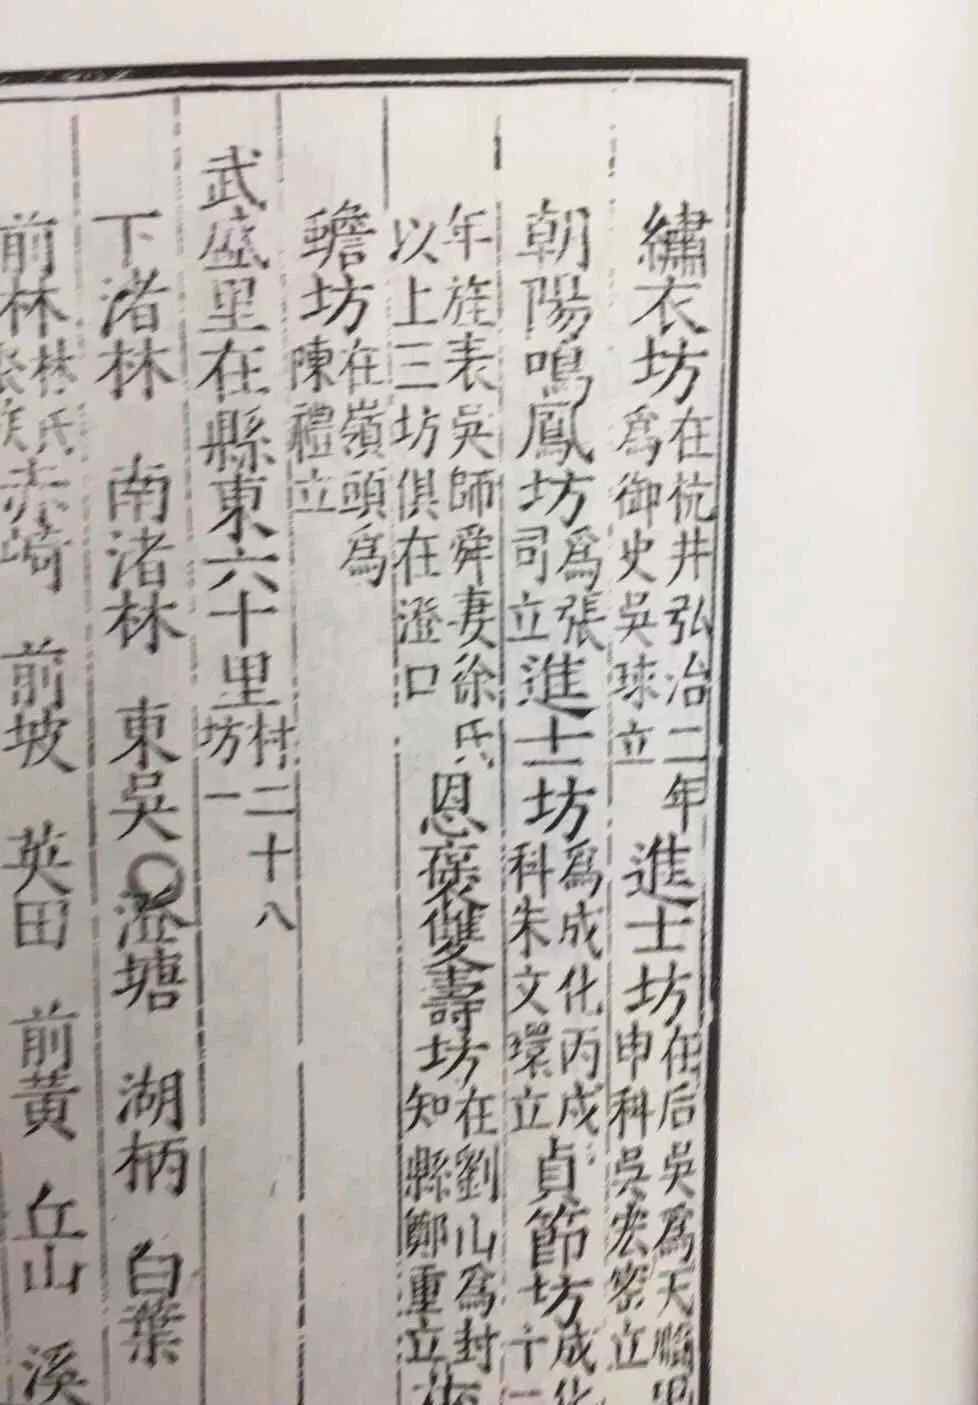 繡衣坊在杭井弘治二年為御史吳球立進士坊在后吳為天順甲申科吳宏密立
朝陽鳴鳳坊為張司立進士坊為成化丙戌科朱文環立貞節坊成化十二
年旌表吳師舜妻徐氏以上三坊俱在澄口恩褒雙壽坊在劉山為封知縣鄭重立
蟾坊在嶺頭為陳禮立
武盛里在縣東六十里村二十八坊一
下渚林 南渚林 東吳 澄塘 湖柄 白葉
前林林氏族赤崎 前坡 英田 前黃 丘山 溪